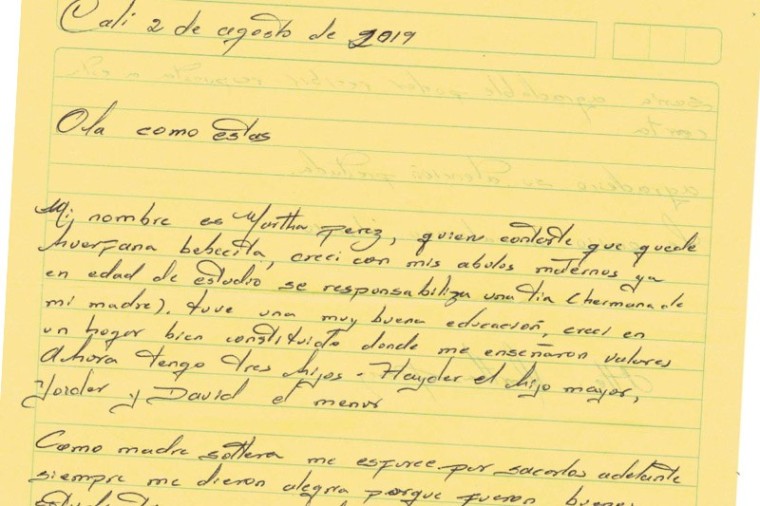 Cali 2 de agosto de 2019
Ola como estas
Mi nombre es Martha perez, quiero contarte que quede
huerfana bebecita, creci con mis abulos maternos ya
en edad de estudio se responsabiliza una tia (hermana de
mi madre). tuve una muy buena educación, creci en
un hogar bien constituido donde me enseñaron valores
Ahora tengo tres hijos - Hayder el hijo mayor,
Yoider y David el menor
Como madre soltera me esforce por sacarlos adelante
siempre me dieron alegria porque fueron buenos